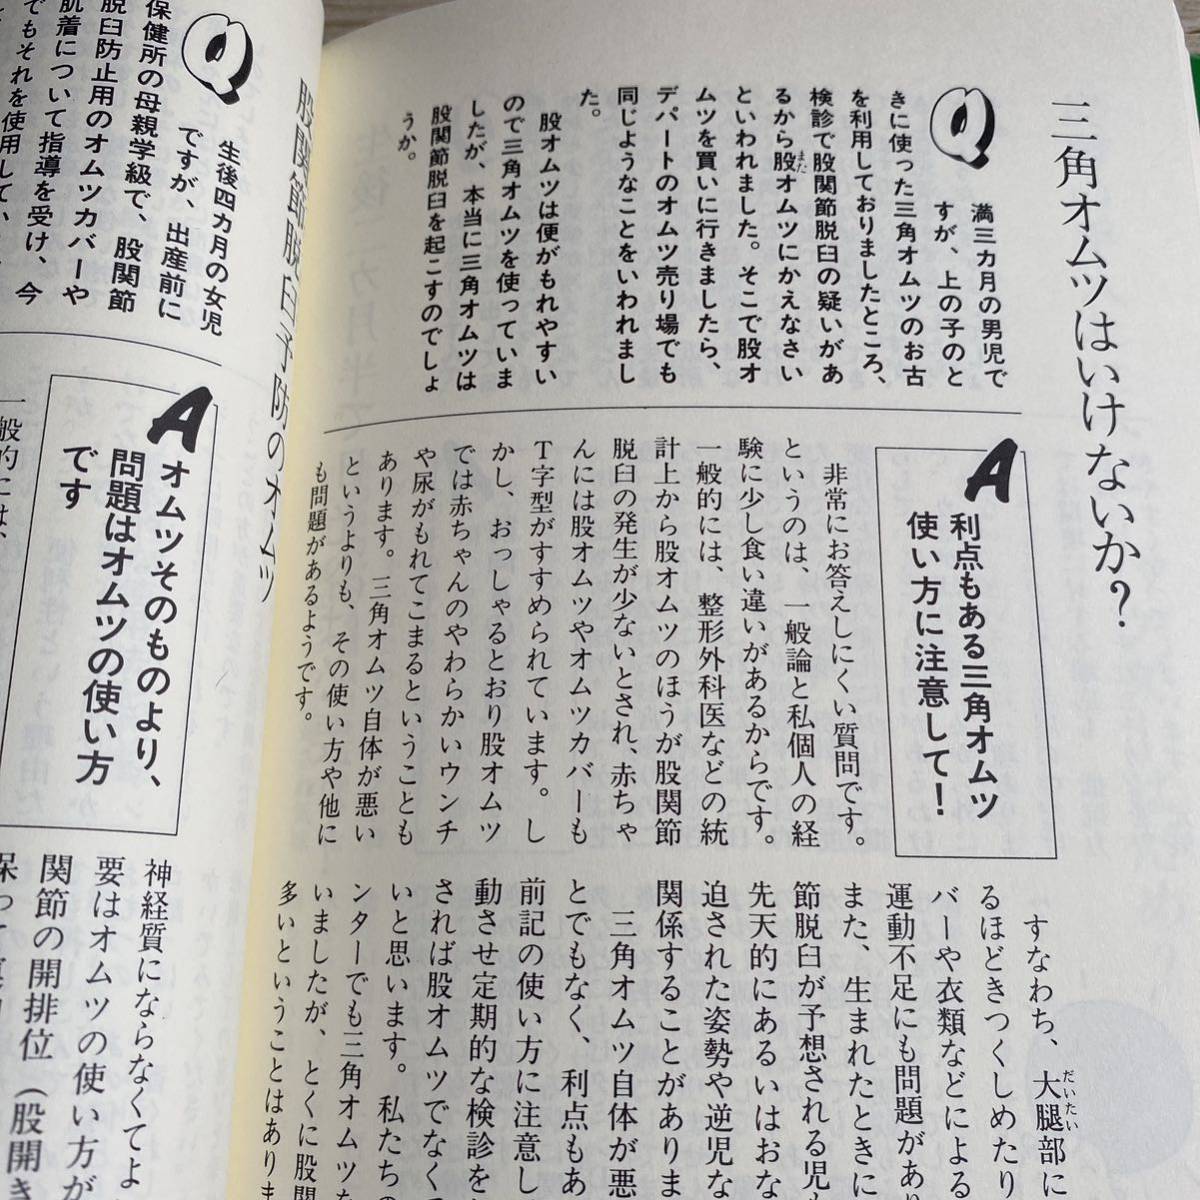 三角オムツはいけないか?
Q
満三カ月の男児で
すが、上の子のと
きに使った三角オムツのお古
を利用しておりましたところ、
検診で股関節脱臼の疑いがあ
るから股オムツにかえなさい
また
といわれました。そこで股オ
ムツを買いに行きましたら、
デパートのオムツ売り場でも
同じようなことをいわれまし
た。
股オムツは便がもれやすい
ので三角オムツを使っていま
したが、本当に三角オムツは
股関節脱臼を起こすのでしょ
うか。
A
利点もある三角オムツ
使い方に注意して!
非常にお答えしにくい質問です。
というのは、一般論と私個人の経
験に少し食い違いがあるからです。
一般的には、整形外科医などの統
計上から股オムツのほうが股関節
脱臼の発生が少ないとされ、赤ちゃ
んには股オムツやオムツカバーも
T字型がすすめられています。し
かし、おっしゃるとおり股オムツ
では赤ちゃんのやわらかいウンチ
や尿がもれてこまるということも
あります。三角オムツ自体が悪い
というよりも、その使い方や他に
も問題があるようです。
すなわち、大腿部に
だいたい
るほどきつくしめたり
バーや衣類などによる
運動不足にも問題があり
また、生まれたときに
節脱臼が予想される児
先天的にあるいはおな
迫された姿勢や逆児な
関係することがありま
三角オムツ自体が悪
とでもなく、利点もあ
前記の使い方に注意し
動させ定期的な検診を
されば股オムツでなくて
いと思います。私たちの
ンターでも三角オムツを
いましたが、とくに股関
多いということはありま
股関節脱臼予防のオムツ
Q
生後四カ月の女児
ですが、出産前に
保健所の母親学級で、股関節
脱臼防止用のオムツカバーや
肌着について指導を受け、今
でもそれを使用して、
A
オムツそのものより、
問題はオムツの使い方
です
一般的には、
神経質にならなくてよ
要はオムツの使い方が
関節の開排位(股開き
保って